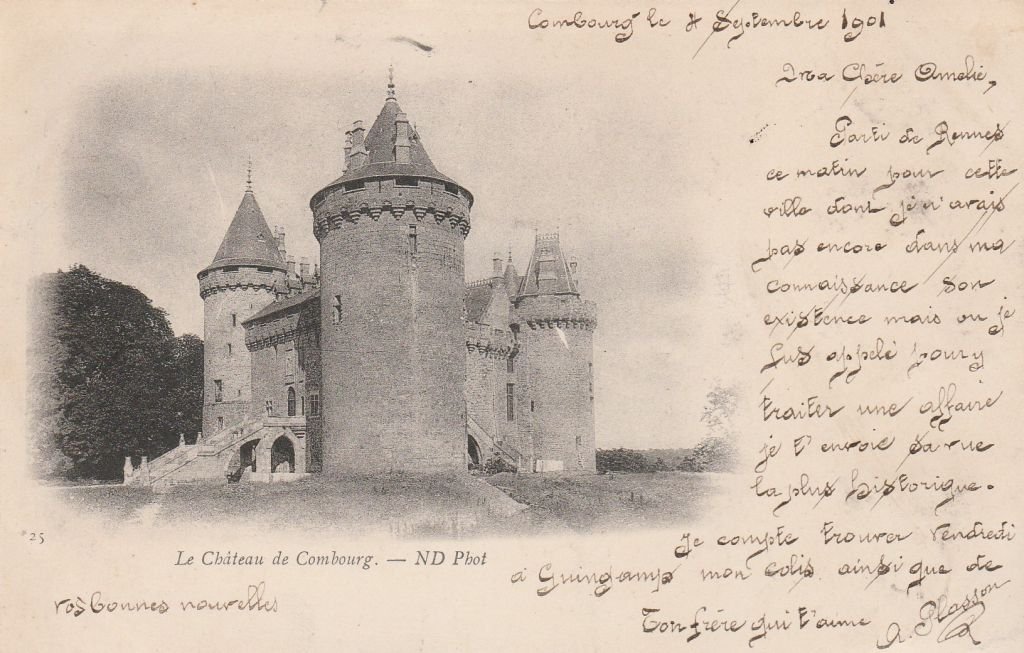 Combourg le 4 Septembre 1901
Ma Chère Amelie,
Parti de Rennes
ce matin pour cette
ville dont je n'avais
pas encore dans ma
connaissance son
existence mais ou je
fus appelé pour y
traiter une affaire
je t'envoie sa vue
la plus historique.
Je compte trouver Vendredi
à Guingamp mon colis ainsi que de
vos bonnes nouvelles
Ton frère qui t'aime
A. Plasson
25
Le Château de Combourg. — ND Phot